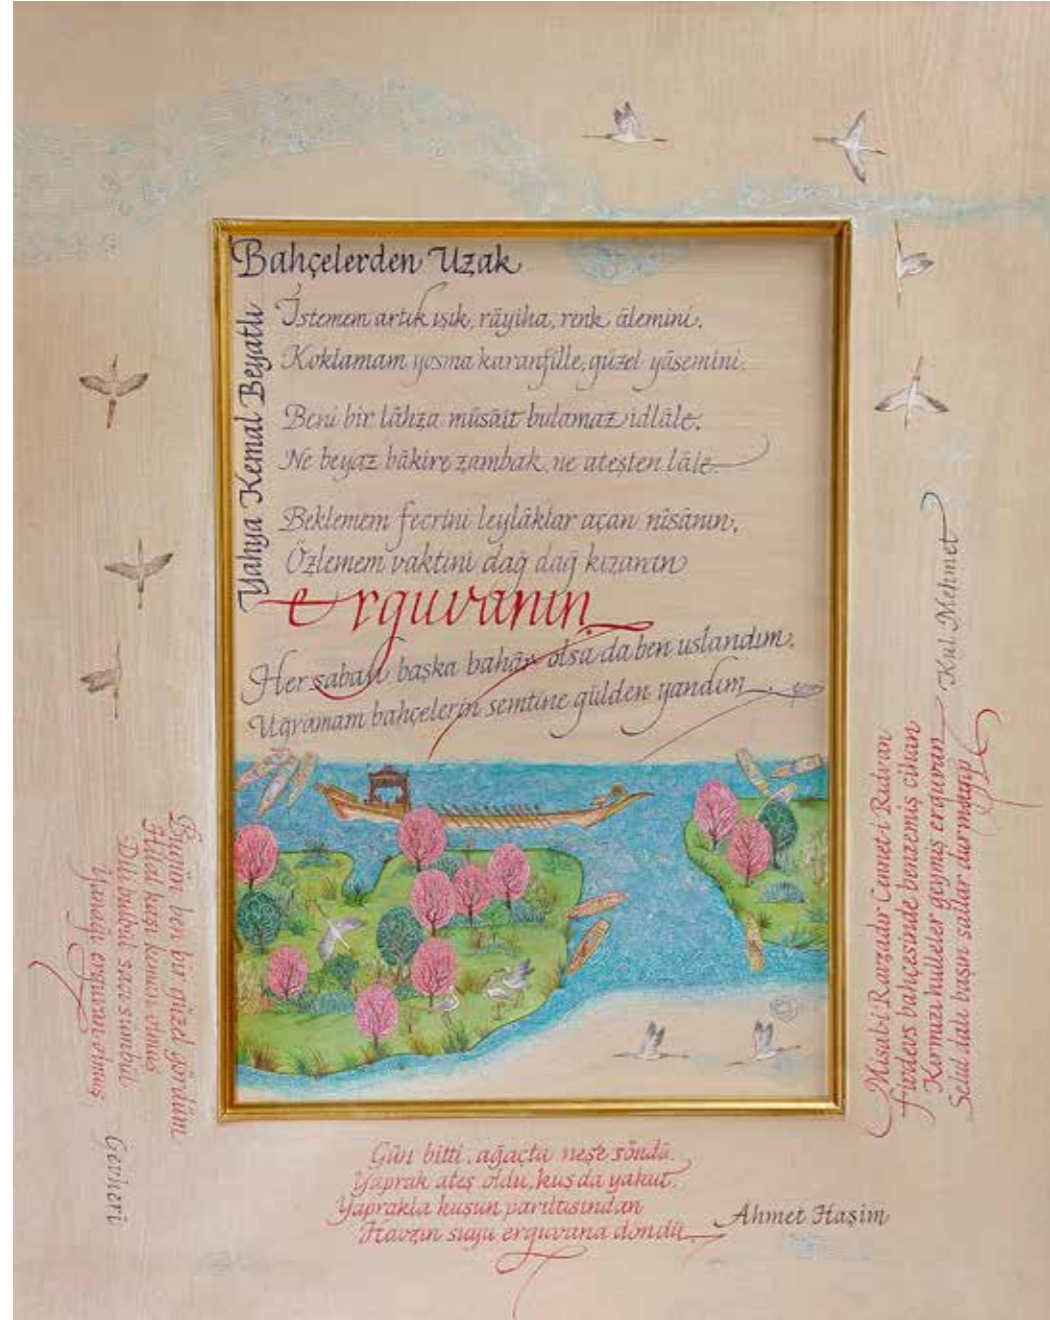 Bahçelerden Uzak
Yahya Kemal Beyatlı
İstemem artık ışık, râyiha, renk âlemini,
Koklamam yosma karanfille, güzel yâsemini.
Beni bir lâhza müsâit bulamaz idlâle,
Ne beyaz bâkire zambak, ne ateşten lâle.
Beklemem fecrini leylâklar açan nîsânın,
Özlemem vaktini dağ dağ kızaran
erguvanın
Her sabah başka bahâr olsa da ben uslandım,
Uğramam bahçelerin semtine gülden yandım
Bugün ben bir güzel gördüm
Hilal kaşı keman olmuş
Dili bülbül saçı sümbül
Yanağı erguvan olmuş
Gevheri
Misal-i Ravzadır Cennet-i Rıdvan
Firdevs bahçesinde benzemiş cinan
Kırmızı hulleler geymiş erguvan
Selvi dalı başın sallar durmayıp
Kul Mehmet
Gün bitti, ağaçta neş'e söndü.
Yaprak ateş oldu, kuş da yakut.
Yaprakla kuşun parıltısından
Havzın suyu erguvana döndü
Ahmet Haşim